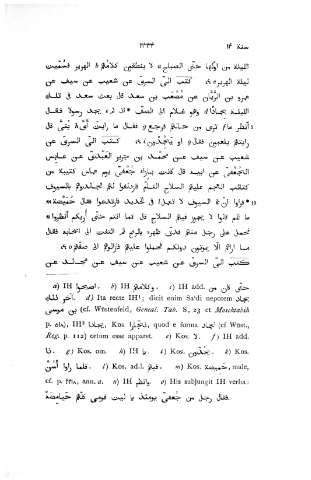 سنة ١٤ ٢٣٣٣
الليلة من اولها حتى الصباح لا ينطقون كلامهم الهرير فسُمّيت
ليلة الهرير، كتب الىّ السرىّ عن شعيب عن سيف عن
عمرو بن الريّان عن مُصْعَب بن سعد قال بعث سعد فى تلك
الليلة بجادًا وهو غلام الى الصفّ لم يجد رسولا فقال
انظر ما ترى من حالهم فرجع فقال ما رايتَ أَىْ بُنَىّ قال
رايتهم يلعبون فقال او يَجِدُّون، كتب الىّ السرىّ عن
شعيب عن سيف عن محمّد بن جرير العَبْدىّ عن عابس
الجُعْفىّ عن ابيه قال كانت بازاء جُعْفىّ يوم عماس كتيبة من
كتائب العجم عليهم السلاح التامّ فازدلفوا لهم فجالدوهم بالسيوف
فراوا انّ السيوف لا تعمل فى الحديد فارتدعوا فقال حُمَيْضة
ما لكم قالوا لا يجوز فيهم السلاح قال كما انتم حتى أُريكم انظروا
فحمل على رجل منهم فدقّ ظهره بالرمح ثم التفت الى اصحابه فقال
ما اراهم الّا يموتون دونكم فحملوا عليهم فازالوهم الى صفّهم،
كتب الىّ السرىّ عن شعيب عن سيف عن مجالد عن
a) IH اصبحوا. b) IH وكلامهم. c) IH add. حتى كان من
آخر تلك. d) Ita recte IH; dicit enim Sa'di nepotem بجاد
بن موسى (cf. Wüstenfeld, Geneal. Tab. S, 23 et Moschtabih
Reg. p. 112) ortum esse apparet. e) Kos. لا. f) IH add.
g) Kos. om. h) IH يا. i) Kos. k) Kos.
l) Kos. add. m) Kos. male,
cf. p. ann. a. n) IH o) His subjungit IH verba:
فقال رجل من جُعفىّ يومئذ